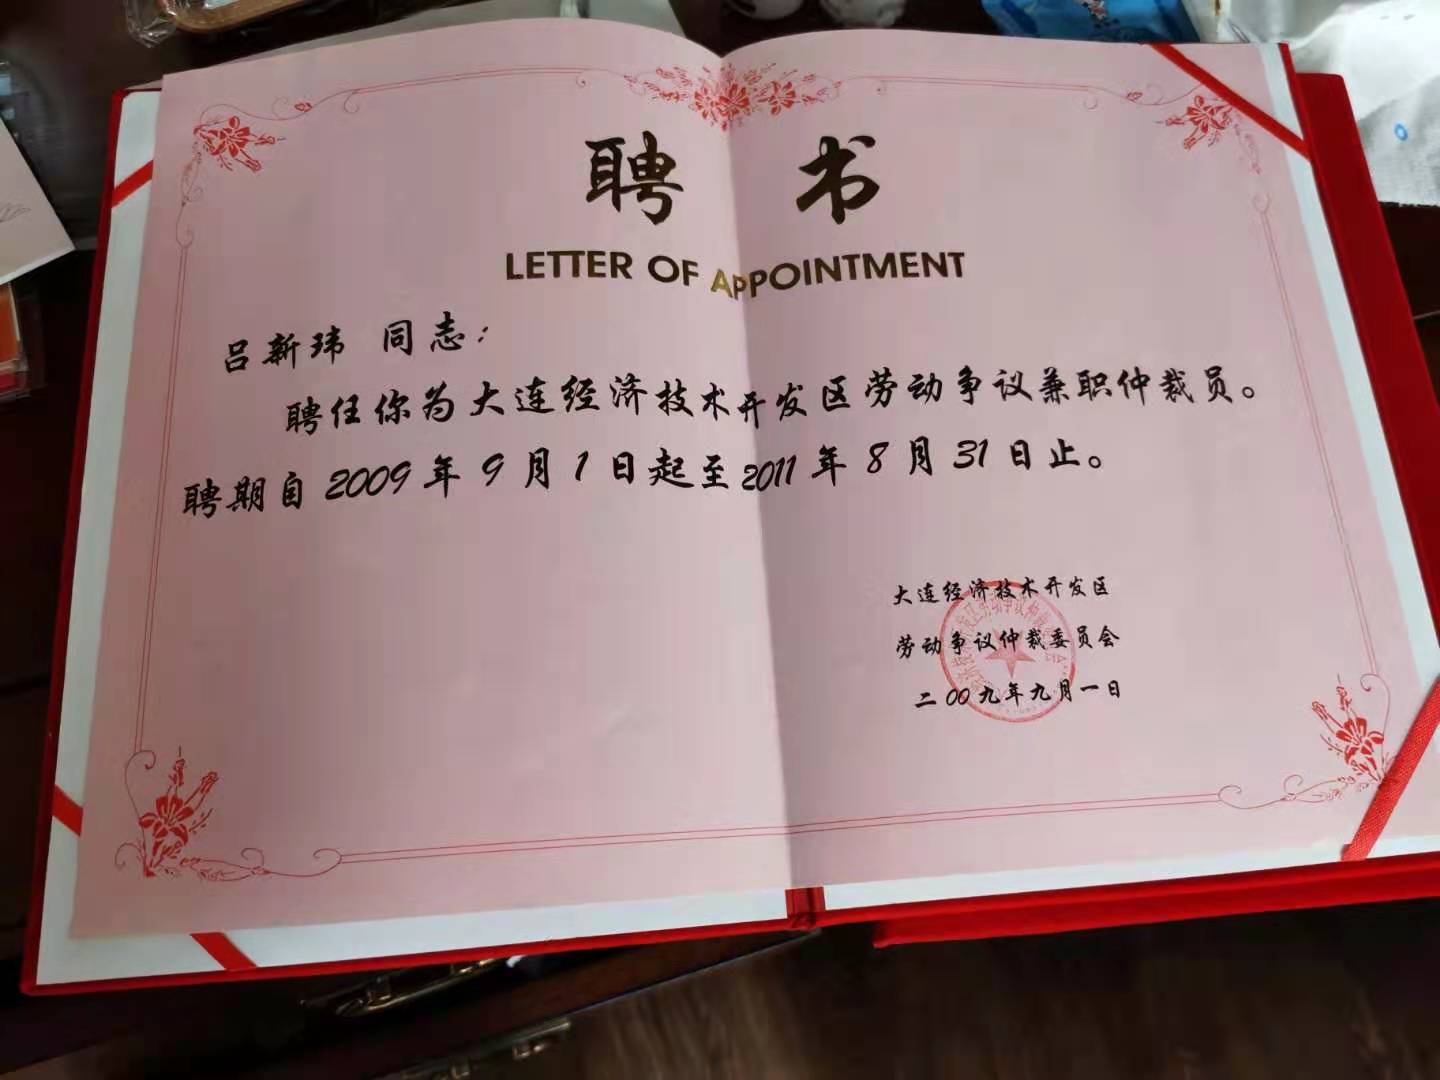 聘 书
LETTER OF APPOINTMENT
吕新玮 同志：
聘任你为大连经济技术开发区劳动争议兼职仲裁员。
聘期自2009年9月1日起至2011年8月31日止。
大连经济技术开发区
劳动争议仲裁委员会
二00九年九月一日